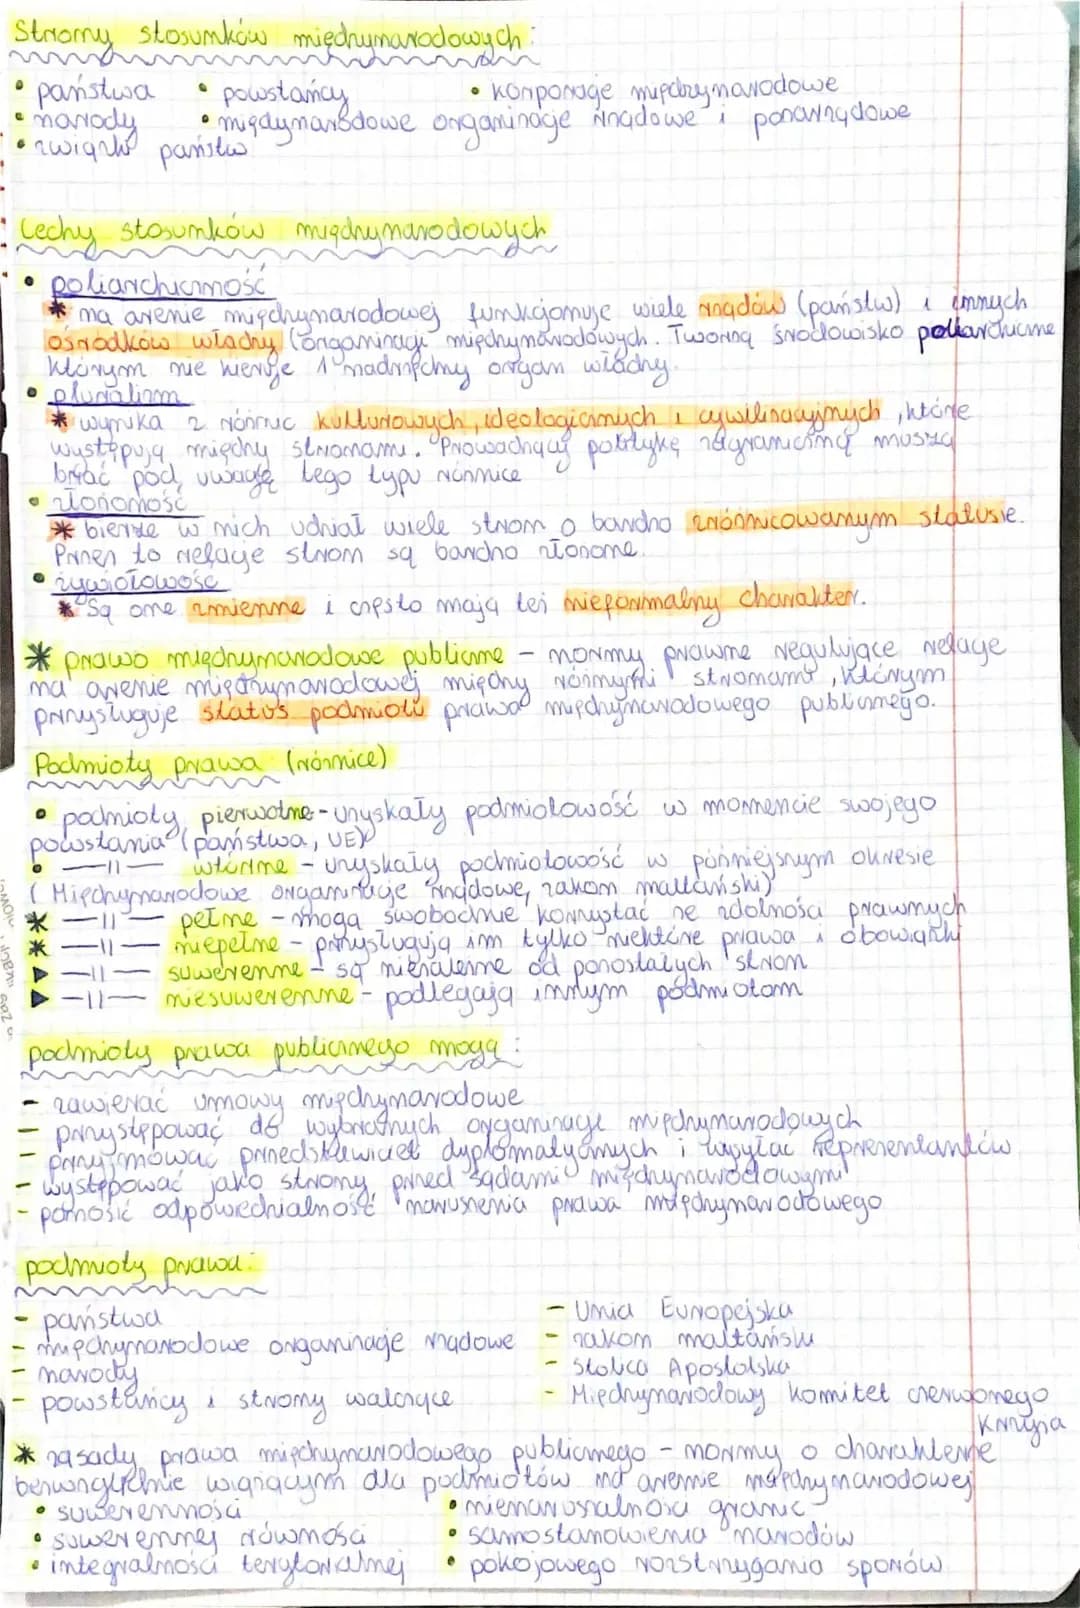 Strony stosunków międzynarodowych:
• państwa • powstańcy • korporacje międzynarodowe
• narody • międzynarodowe organizacje rządowe i pozarządowe
• związki państw
Cechy stosunków międzynarodowych
• poliarchiczność
* na arenie międzynarodowej funkcjonuje wiele rządów (państw) i innych
ośrodków władzy (organizacji międzynarodowych. Tworzą środowisko poliarchiczne
którym nie kieruje 1 nadrzędny organ władzy.
• pluralizm
* wynika z różnic kulturowych, ideologicznych i cywilizacyjnych, które
występują między stronami. Prowadzący politykę zagraniczną muszą
brać pod uwagę tego typu różnice
• złożoność
* bierze w nich udział wiele stron o bardzo zróżnicowanym statusie.
Przez to relacje stron są bardzo złożone.
• żywiołowość
* są one zmienne i często mają też nieformalny charakter.
* prawo międzynarodowe publiczne - normy prawne regulujące relacje
na arenie międzynarodowej między różnymi stronami, którym
przysługuje status podmiotu prawa międzynarodowego publicznego.
Podmioty prawa (różnice)
• podmioty pierwotne - uzyskały podmiotowość w momencie swojego
powstania (państwa, UE)
• —||— wtórne - uzyskały podmiotowość w późniejszym okresie
(Międzynarodowe organizacje rządowe, zakon maltański)
* —||— pełne - mogą swobodnie korzystać ze zdolności prawnych
* —||— niepełne - przysługują im tylko niektóre prawa i obowiązki
▶ —||— suwerenne - są niezależne od pozostałych stron
▶ —||— niesuwerenne - podlegają innym podmiotom
podmioty prawa publicznego mogą:
- zawierać umowy międzynarodowe
- przystępować do wybranych organizacji międzynarodowych
- przyjmować przedstawicieli dyplomatycznych i wysyłać reprezentantów
- występować jako strony przed sądami międzynarodowymi
- ponosić odpowiedzialność naruszenia prawa międzynarodowego
podmioty prawa:
- państwa
- międzynarodowe organizacje rządowe
- narody
- powstańcy i strony walczące
- Unia Europejska
- zakon maltański
- Stolica Apostolska
- Międzynarodowy Komitet czerwonego
Krzyża
* zasady prawa międzynarodowego publicznego - normy o charakterze
bezwzględnie wiążącym dla podmiotów na arenie międzynarodowej
• suwerenności • nienaruszalności granic
• suwerennej równości • samostanowienia narodów
• integralności terytorialnej • pokojowego rozstrzygania sporów